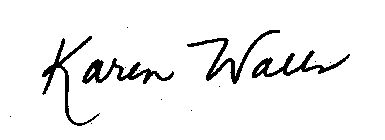 Karen Walls